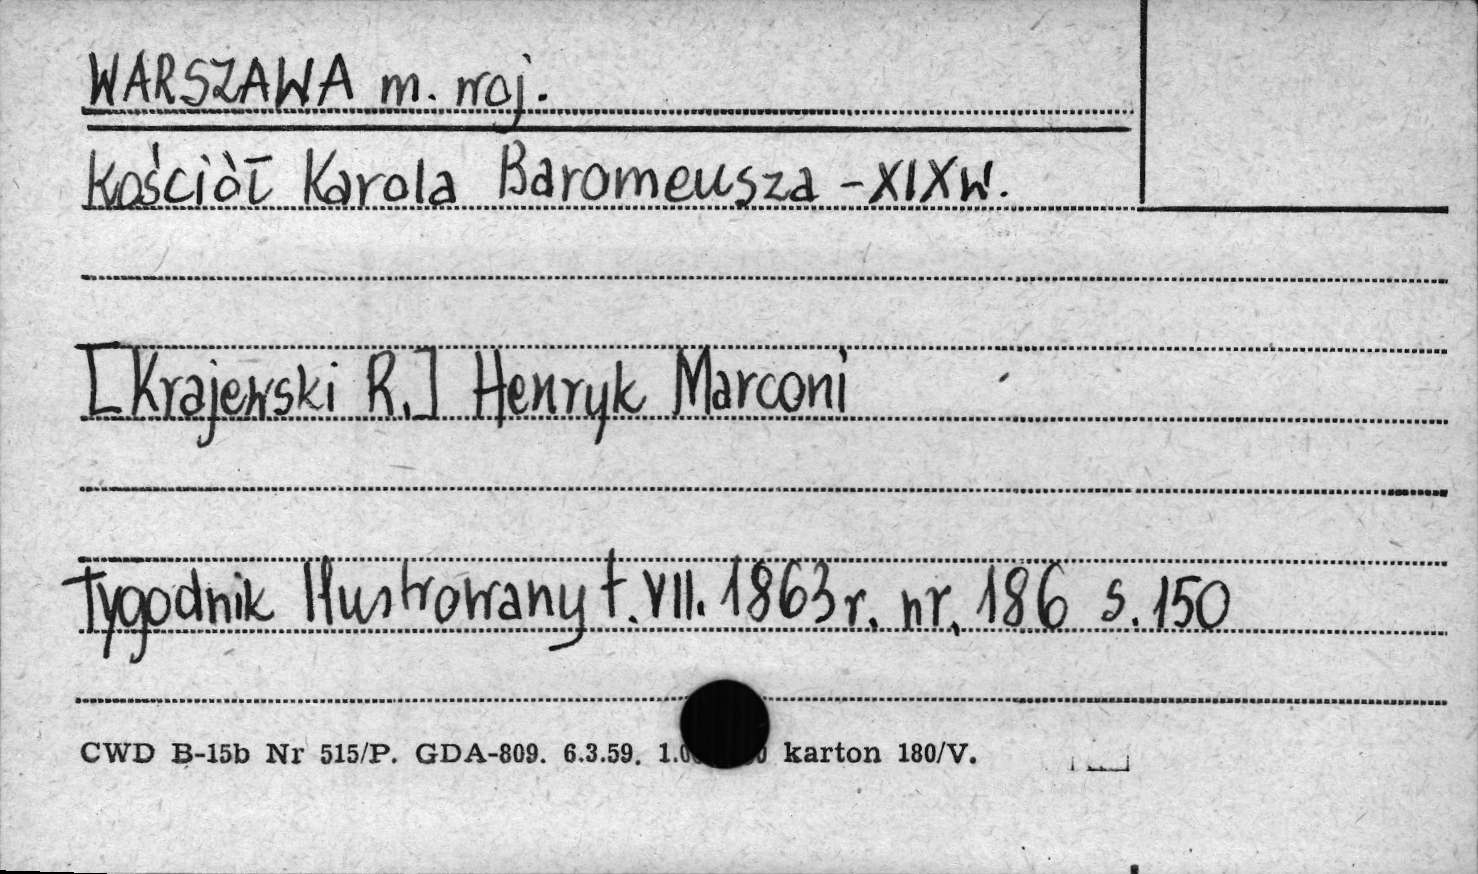 WARSZAWA m. woj.
kościół Karola Baromeusza - XIX w.
[Krajewski R.] Henryk Marconi
Tygodnik Ilustrowany t. VII. 1863 r. nr. 186 s. 150
CWD B-15b Nr 515/P. GDA-809. 6.3.59. karton 180/V.